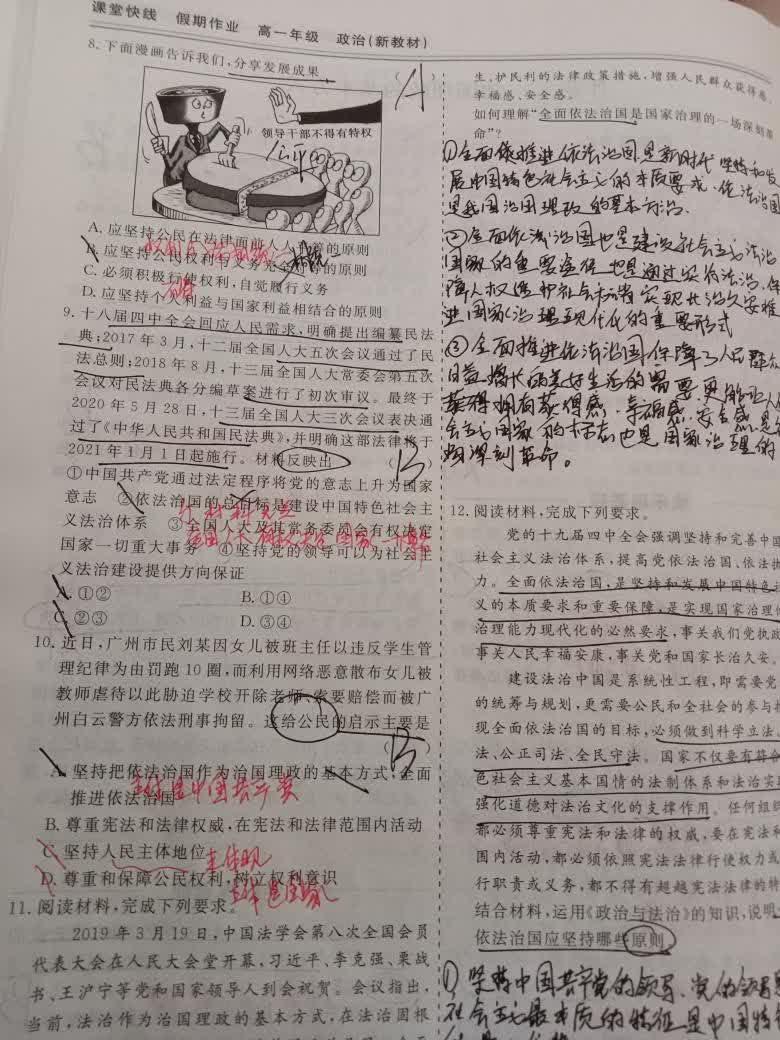 课堂快线 假期作业 高一年级 政治(新教材)
8.下面漫画告诉我们,分享发展成果 ( A )
领导干部不得有特权
公平
A.应坚持公民在法律面前人人平等的原则
B.应坚持公民权利与义务完全对等的原则
C.必须积极行使权利,自觉履行义务
D.应坚持个人利益与国家利益相结合的原则
9.十八届四中全会回应人民需求,明确提出编纂民法
典;2017年3月,十二届全国人大五次会议通过了民
法总则;2018年8月,十三届全国人大常委会第五次
会议对民法典各分编草案进行了初次审议。最终于
2020年5月28日,十三届全国人大三次会议表决通
过了《中华人民共和国民法典》,并明确这部法律将于
2021年1月1日起施行。材料反映出 ( B )
①中国共产党通过法定程序将党的意志上升为国家
意志 ②依法治国的总目标是建设中国特色社会主
义法治体系 ③全国人大及其常务委员会有权决定
国家一切重大事务 ④坚持党的领导可以为社会主
义法治建设提供方向保证
A.①② B.①④
C.②③ D.③④
10.近日,广州市民刘某因女儿被班主任以违反学生管
理纪律为由罚跑10圈,而利用网络恶意散布女儿被
教师虐待以此胁迫学校开除老师、索要赔偿而被广
州白云警方依法刑事拘留。这给公民的启示主要是
( B )
A.坚持把依法治国作为治国理政的基本方式,全面
推进依法治国
主体是中国共产党
B.尊重宪法和法律权威,在宪法和法律范围内活动
C.坚持人民主体地位 主体观
D.尊重和保障公民权利,树立权利意识
主体是国家
11.阅读材料,完成下列要求。
2019年3月19日,中国法学会第八次全国会员
代表大会在人民大会堂开幕,习近平、李克强、栗战
书、王沪宁等党和国家领导人到会祝贺。会议指出,
当前,法治作为治国理政的基本方式,在法治固根
生、护民利的法律政策措施,增强人民群众获得感、
幸福感、安全感。
如何理解“全面依法治国是国家治理的一场深刻革
命”?
①全面推进依法治国是新时代坚持和发
展中国特色社会主义的本质要求,依法治国
是我国治国理政的基本方式.
②全面依法治国也是建设社会主义法治
国家的重要途径也是通过实行法治,保
障人权维护社会 实现长治久安推
进国家治理现代化的重要形式
③全面推进依法治国保障了人民群众
日益增长的美好生活的需要,更能让人
获得拥有获得感、幸福感、安全感是
会主义国家的标志也是国家治理的
场深刻革命。
12.阅读材料,完成下列要求。
党的十九届四中全会强调坚持和完善中国
社会主义法治体系,提高党依法治国、依法执
力。全面依法治国,是坚持和发展中国特色
义的本质要求和重要保障,是实现国家治理体
治理能力现代化的必然要求,事关我们党执政
事关人民幸福安康,事关党和国家长治久安。
建设法治中国是系统性工程,即需要党
的统筹与规划,更需要公民和全社会的参与
现全面依法治国的目标,必须做到科学立法、
法、公正司法、全民守法。国家不仅要有符合
色社会主义基本国情的法制体系和法治实
强化道德对法治文化的支撑作用。任何组织
都必须尊重宪法和法律的权威,要在宪法和
国内活动,都必须依照宪法法律行使权力或
行职责或义务,都不得有超越宪法法律的特
结合材料,运用《政治与法治》的知识,说明
依法治国应坚持哪些原则
①坚持中国共产党的领导、党的领导
社会主义最本质的特征是中国特